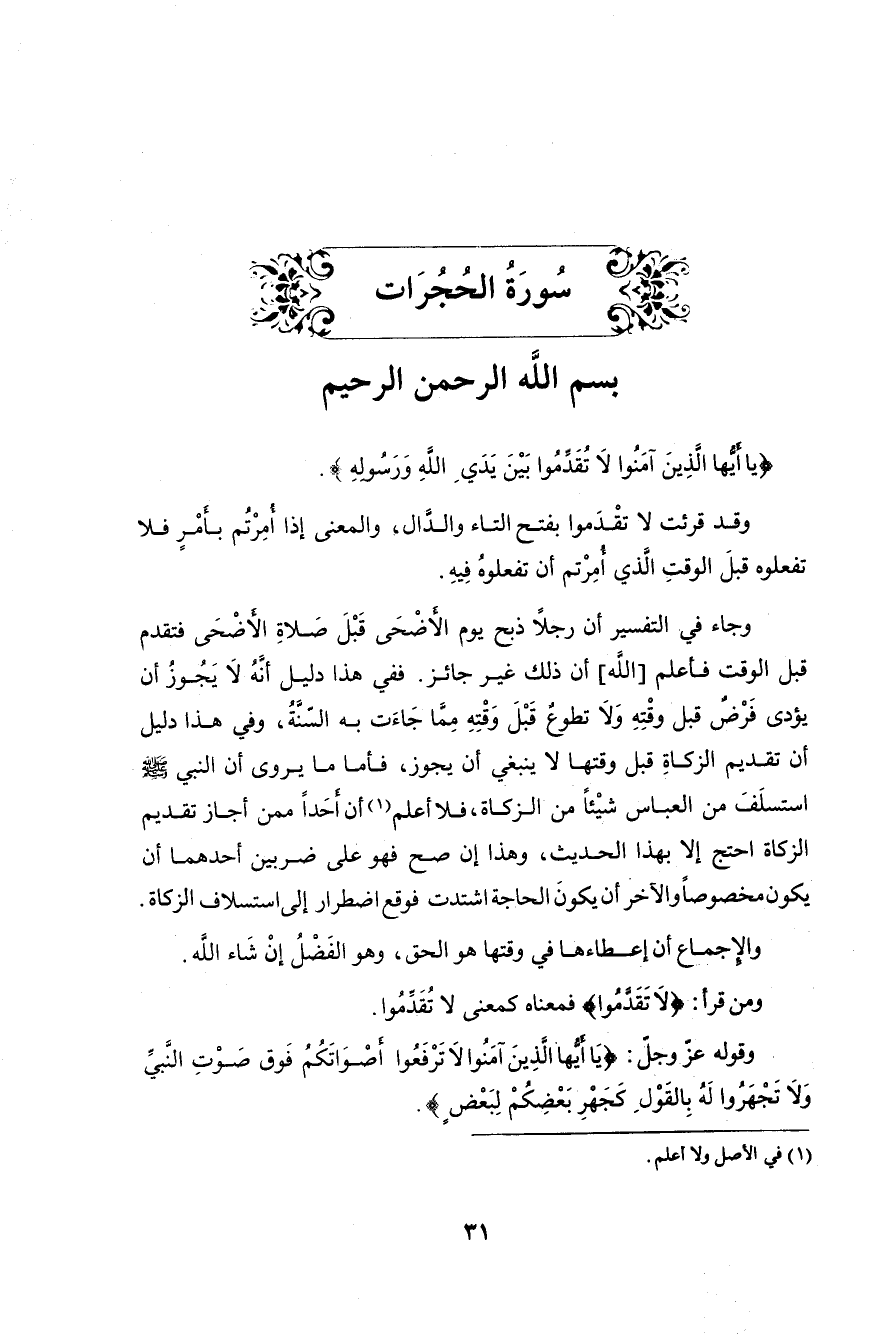 سُورَةُ الحُجُرَات
بسم اللَّه الرحمن الرحيم
﴿يا أَيُّها الَّذِينَ آمَنُوا لَا تُقَدِّمُوا بَيْنَ يَدَيِ اللَّهِ وَرَسُولِهِ﴾.
وقد قرئت لا تقْدَموا بفتح التاء والدَّال، والمعنى إذا أُمِرْتُم بأَمْرٍ فلا
تفعلوه قبلَ الوقتِ الَّذي أُمِرْتم أن تفعلوهُ فِيهِ.
وجاء في التفسير أن رجلاً ذبح يوم الأَضْحَى قَبْلَ صَلاةِ الأَضْحَى فتقدم
قبل الوقت فأعلم [اللَّه] أن ذلك غير جائز. ففي هذا دليل أنَّهُ لَا يَجُوزُ أن
يؤدى فَرْضٌ قبل وقْتِهِ وَلَا تطوعٌ قَبْلَ وَقْتِهِ مِمَّا جَاءَت به السّنَّةُ، وفي هذا دليل
أن تقديم الزكاةِ قبل وقتها لا ينبغي أن يجوز، فأما ما يروى أن النبي ﷺ
استسلَفَ من العباس شيْئاً من الزكاة، فلا أعلم(١) أن أَحَداً ممن أجاز تقديم
الزكاة احتج إلا بهذا الحديث، وهذا إن صح فهو على ضربين أحدهما أن
يكون مخصوصاً والآخر أن يكونَ الحاجة اشتدت فوقع اضطرار إلى استسلاف الزكاة.
والإجماع أن إعطاءها في وقتها هو الحق، وهو الفَضْلُ إنْ شَاء اللَّه.
ومن قرأ: ﴿لَا تَقَدَّمُوا﴾ فمعناه كمعنى لا تُقَدِّمُوا.
وقوله عزّ وجلّ: ﴿يَا أَيُّها الَّذِينَ آمَنُوا لَا تَرْفَعُوا أَصْوَاتَكُمُ فَوق صَوْتِ النَّبيِّ
وَلَا تَجْهَرُوا لَهُ بِالقَوْلِ كَجَهْرِ بَعْضِكُمْ لِبَعْضٍ﴾.
(١) في الأصل ولا أعلم.
٣١